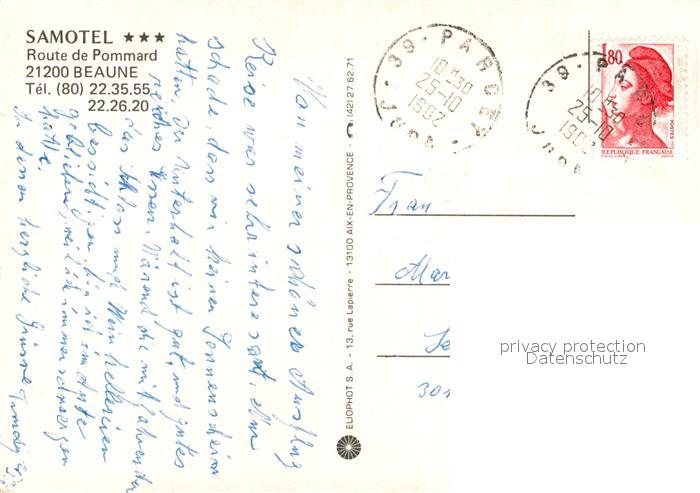 SAMOTEL ★★★
Route de Pommard
21200 BEAUNE
Tél. (80) 22.35.55
22.26.20
Von meiner schönen Ausflug
Reise war sehr interessant, nur
schade, dass wir keinen Sonnenschein
hatten, die Unterhalt ist gut, und gutes
reiches Essen. Wärend die mitfahrenden
das Schloss und Weinkellereien
besichtigen, bin ich im Auto
geblieben, weil ich immer schmerzen
hatte.
In dessen herzliche Grüsse
ELIOPHOT S. A. - 13, rue Lapierre - 13100 AIX-EN-PROVENCE - (42) 27.62.71
39 - PARCEY
10 H 30
25-10
1982
JURA
39 - PARCEY
10 H 30
25-10
1982
JURA
1,80
POSTES
REPUBLIQUE FRANÇAISE
Frau
Mar
Se
301
privacy protection
Datenschutz